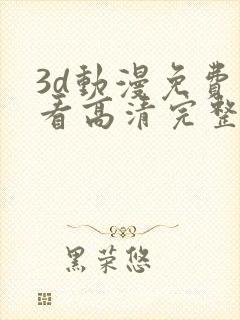 3d動漫免費
看高清完整
黑荣悠